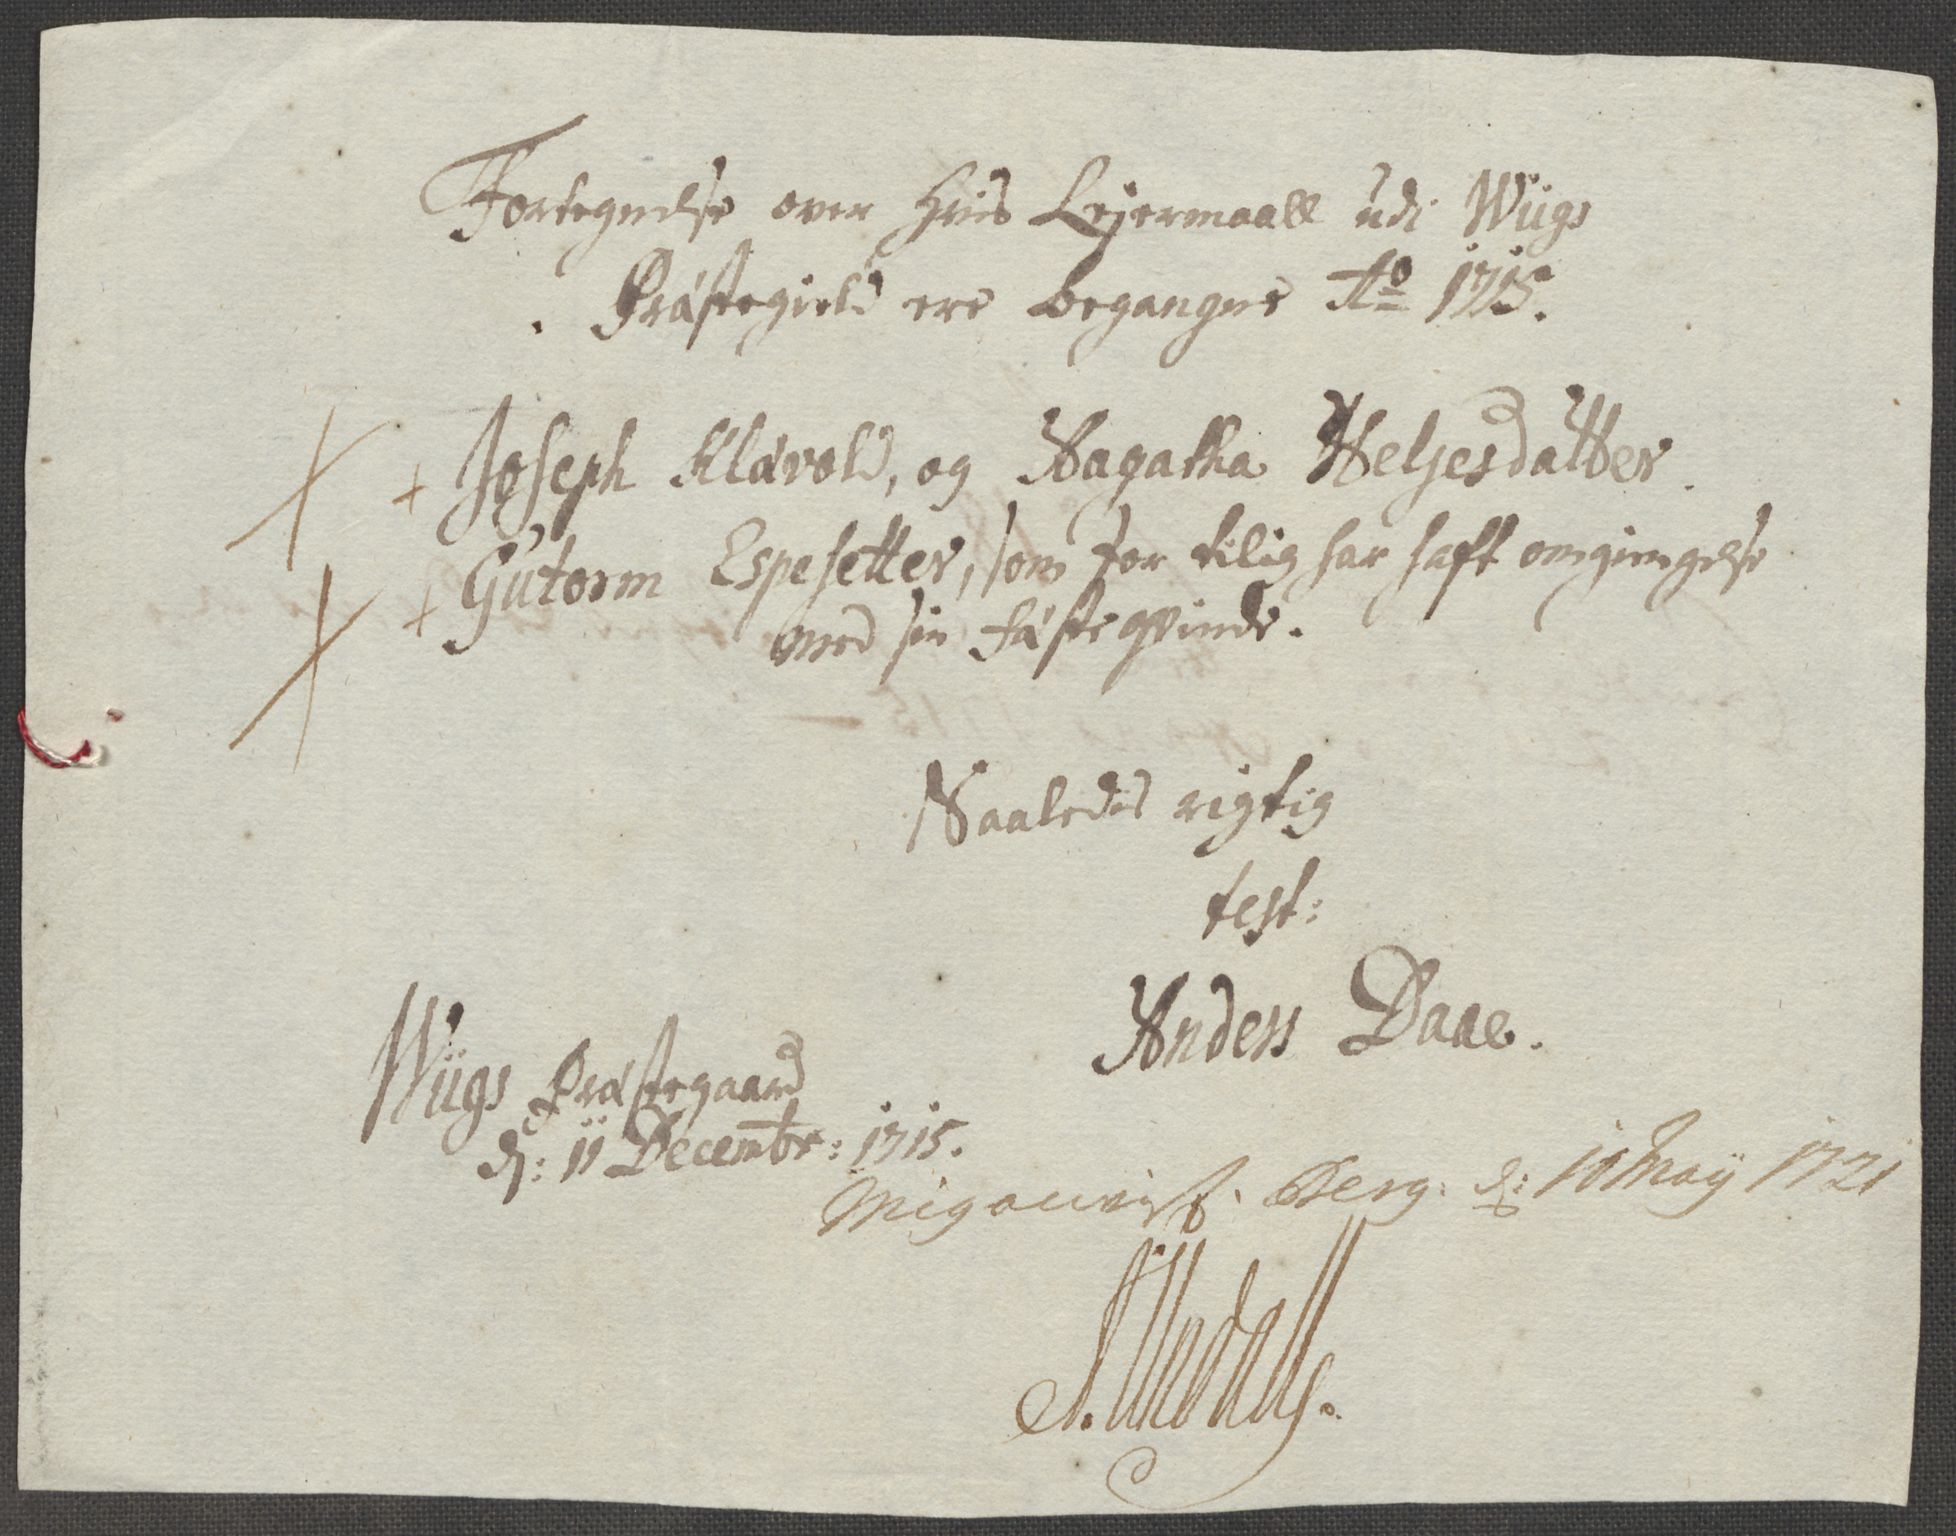 Fortegnelse over hvis Lejermaall udi Wiigs
Præstegield ere begangne Ao 1715.
+ Joseph Klævold, og Aagatha Heljesdatter.
+ Gutorm Espesetter, som for tilig har haft omgiengelse
med sin fæste qvinde.
Saaledes rigtig
test:
Anders Daae.
Wiigs Præstegaard
d: 11 Decembr: 1715.
Mig anviist. Berg: d: 10 May 1721